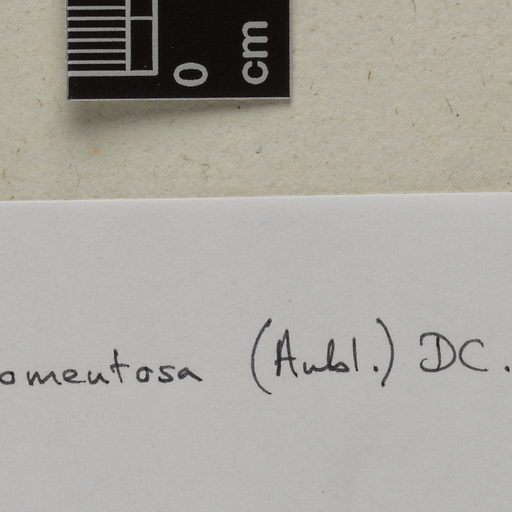 0 cm
omentosa (Aubl.) DC.